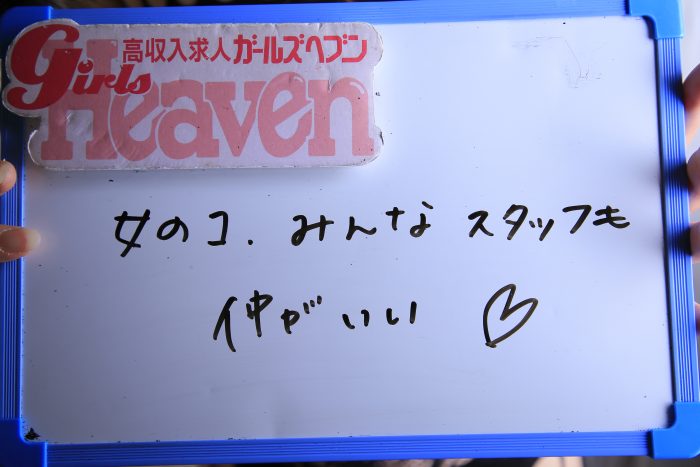 高収入求人ガールズヘブン
Girls
Heaven
女のコ.みんな スタッフも
仲がいい ♡